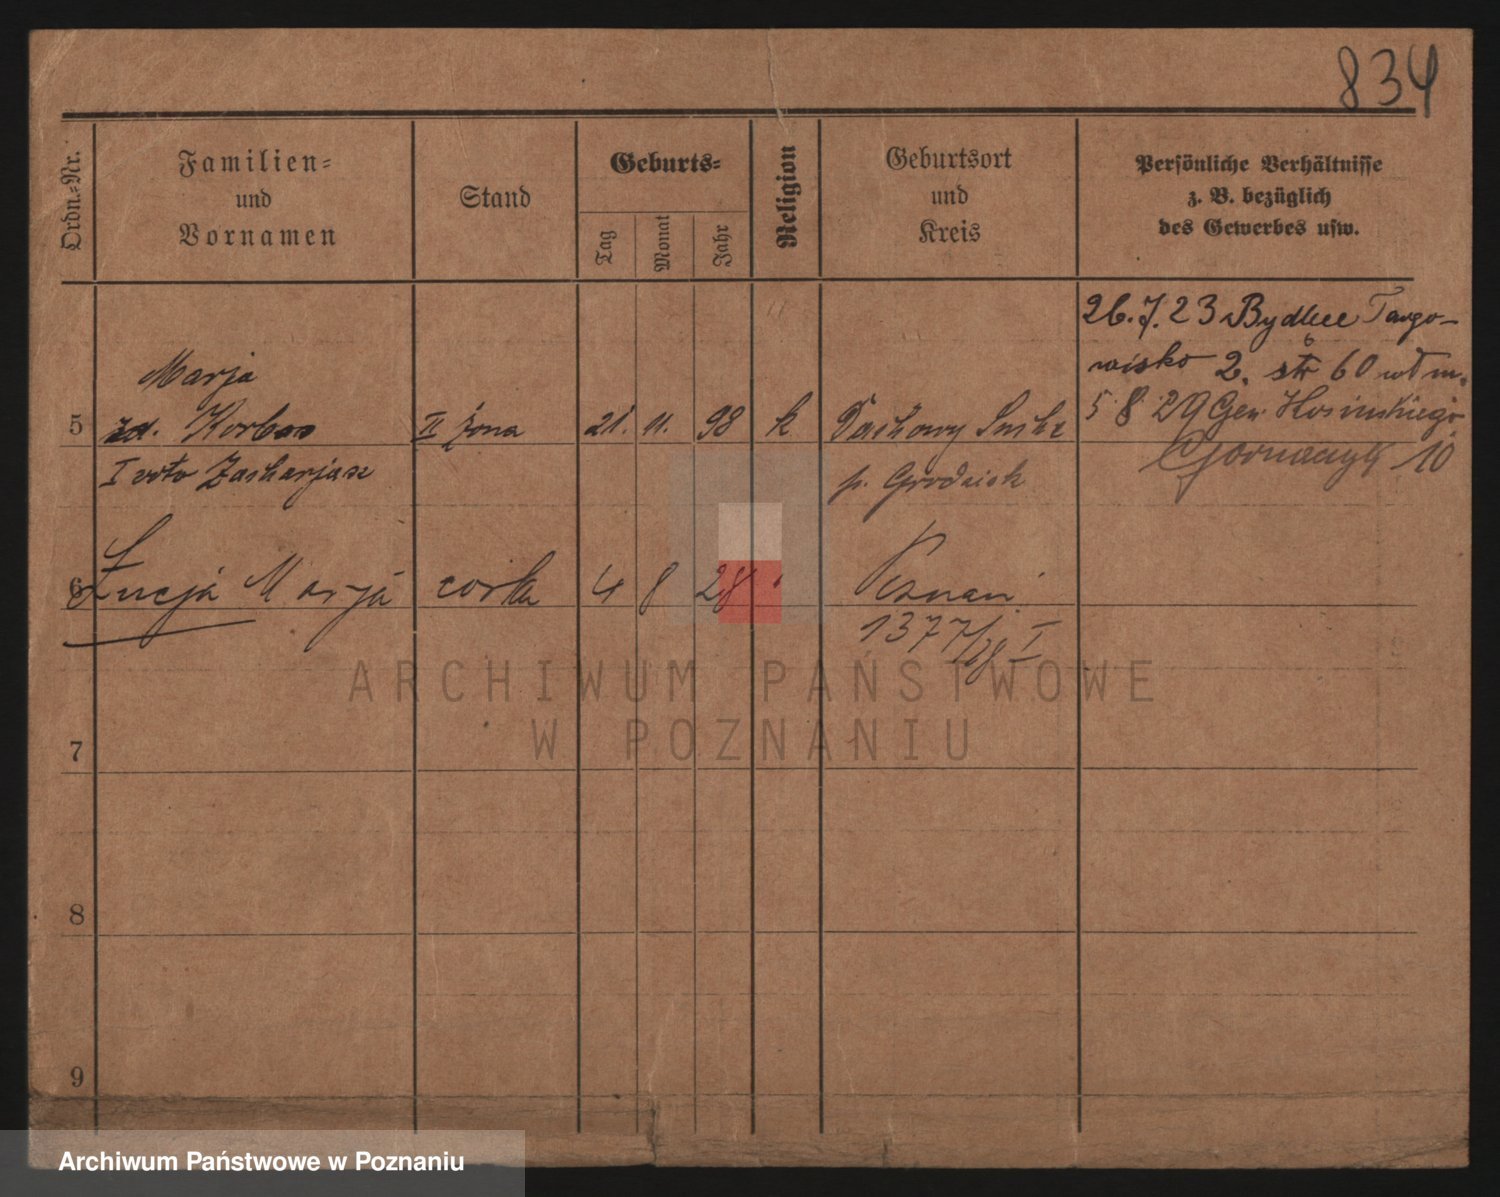 834
Ordn.-Nr.
Familien-
und
Vornamen
Stand
Geburts-
Tag
Monat
Jahr
Religion
Geburtsort
und
Kreis
Persönliche Verhältnisse
z. B. bezüglich
des Gewerbes usw.
26.7.23 Bydlece Targo-
wisko 2. str 60 wł m.
5 8 29 Gen. Kosinskiego
10
Marja
5 zd. Korbas II żona 21. 11. 98 k
I voto Zacharjasz p. Grodzisk
6 Łucja Marja córka 4 8 28 Poznań
1377/28 I
7
8
9
ARCHIWUM PAŃSTWOWE
W POZNANIU
Archiwum Państwowe w Poznaniu